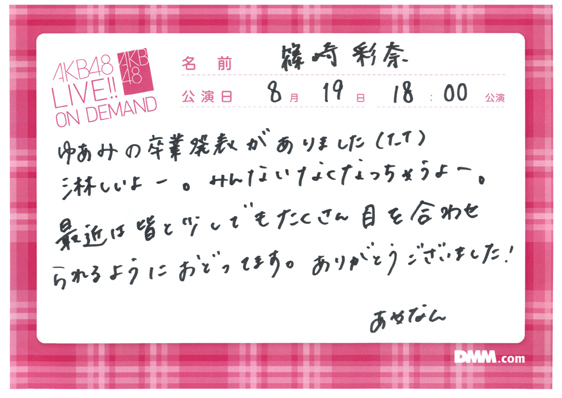 AKB48
LIVE!!
ON DEMAND
AKB
48
名前 篠崎彩奈
公演日 8月19日 18:00公演
ゆあみの卒業発表がありました(T_T)
淋しいよー。みんないなくなっちゃうよー。
最近は皆と少しでもたくさん目を合わせ
られるようにおどってます。ありがとうございました!
あやなん
DMM.com